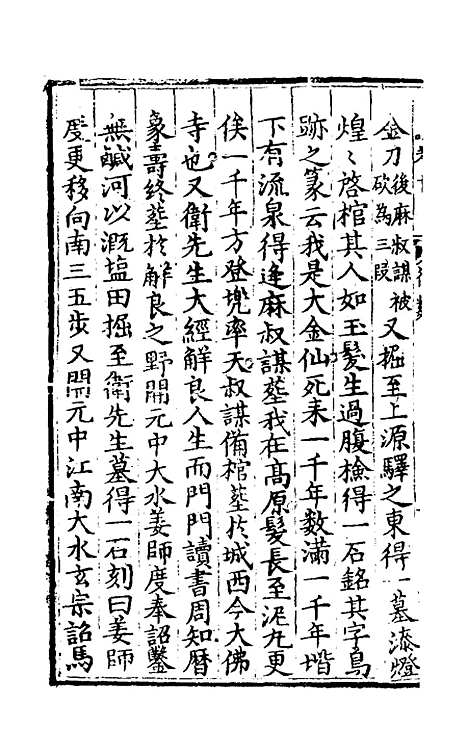 金刀後麻叔謀被砍為三段又掘至上源驛之東得一墓漆燈
煌〻啓棺其人如玉髪生過腹撿得一石銘其字鳥
跡之篆云我是大金仙死来一千年数滿一千年墖
下有流泉得逢麻叔謀塟我在高原髮長至泥丸更
俟一千年方登兠率天叔謀備棺塟扵城西今大佛
寺也又衛先生大經解良人生而門門讀書周知暦
象壽終塟扵解良之野開元中大水姜師度奉詔鑿
無鹹河以溉塩田掘至衛先生墓得一石刻曰姜師
度更移向南三五步又開元中江南大水玄宗詔馬